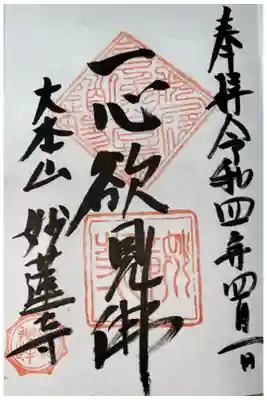 奉拝 令和四年四月一日
一心欲見佛
大本山 妙蓮寺